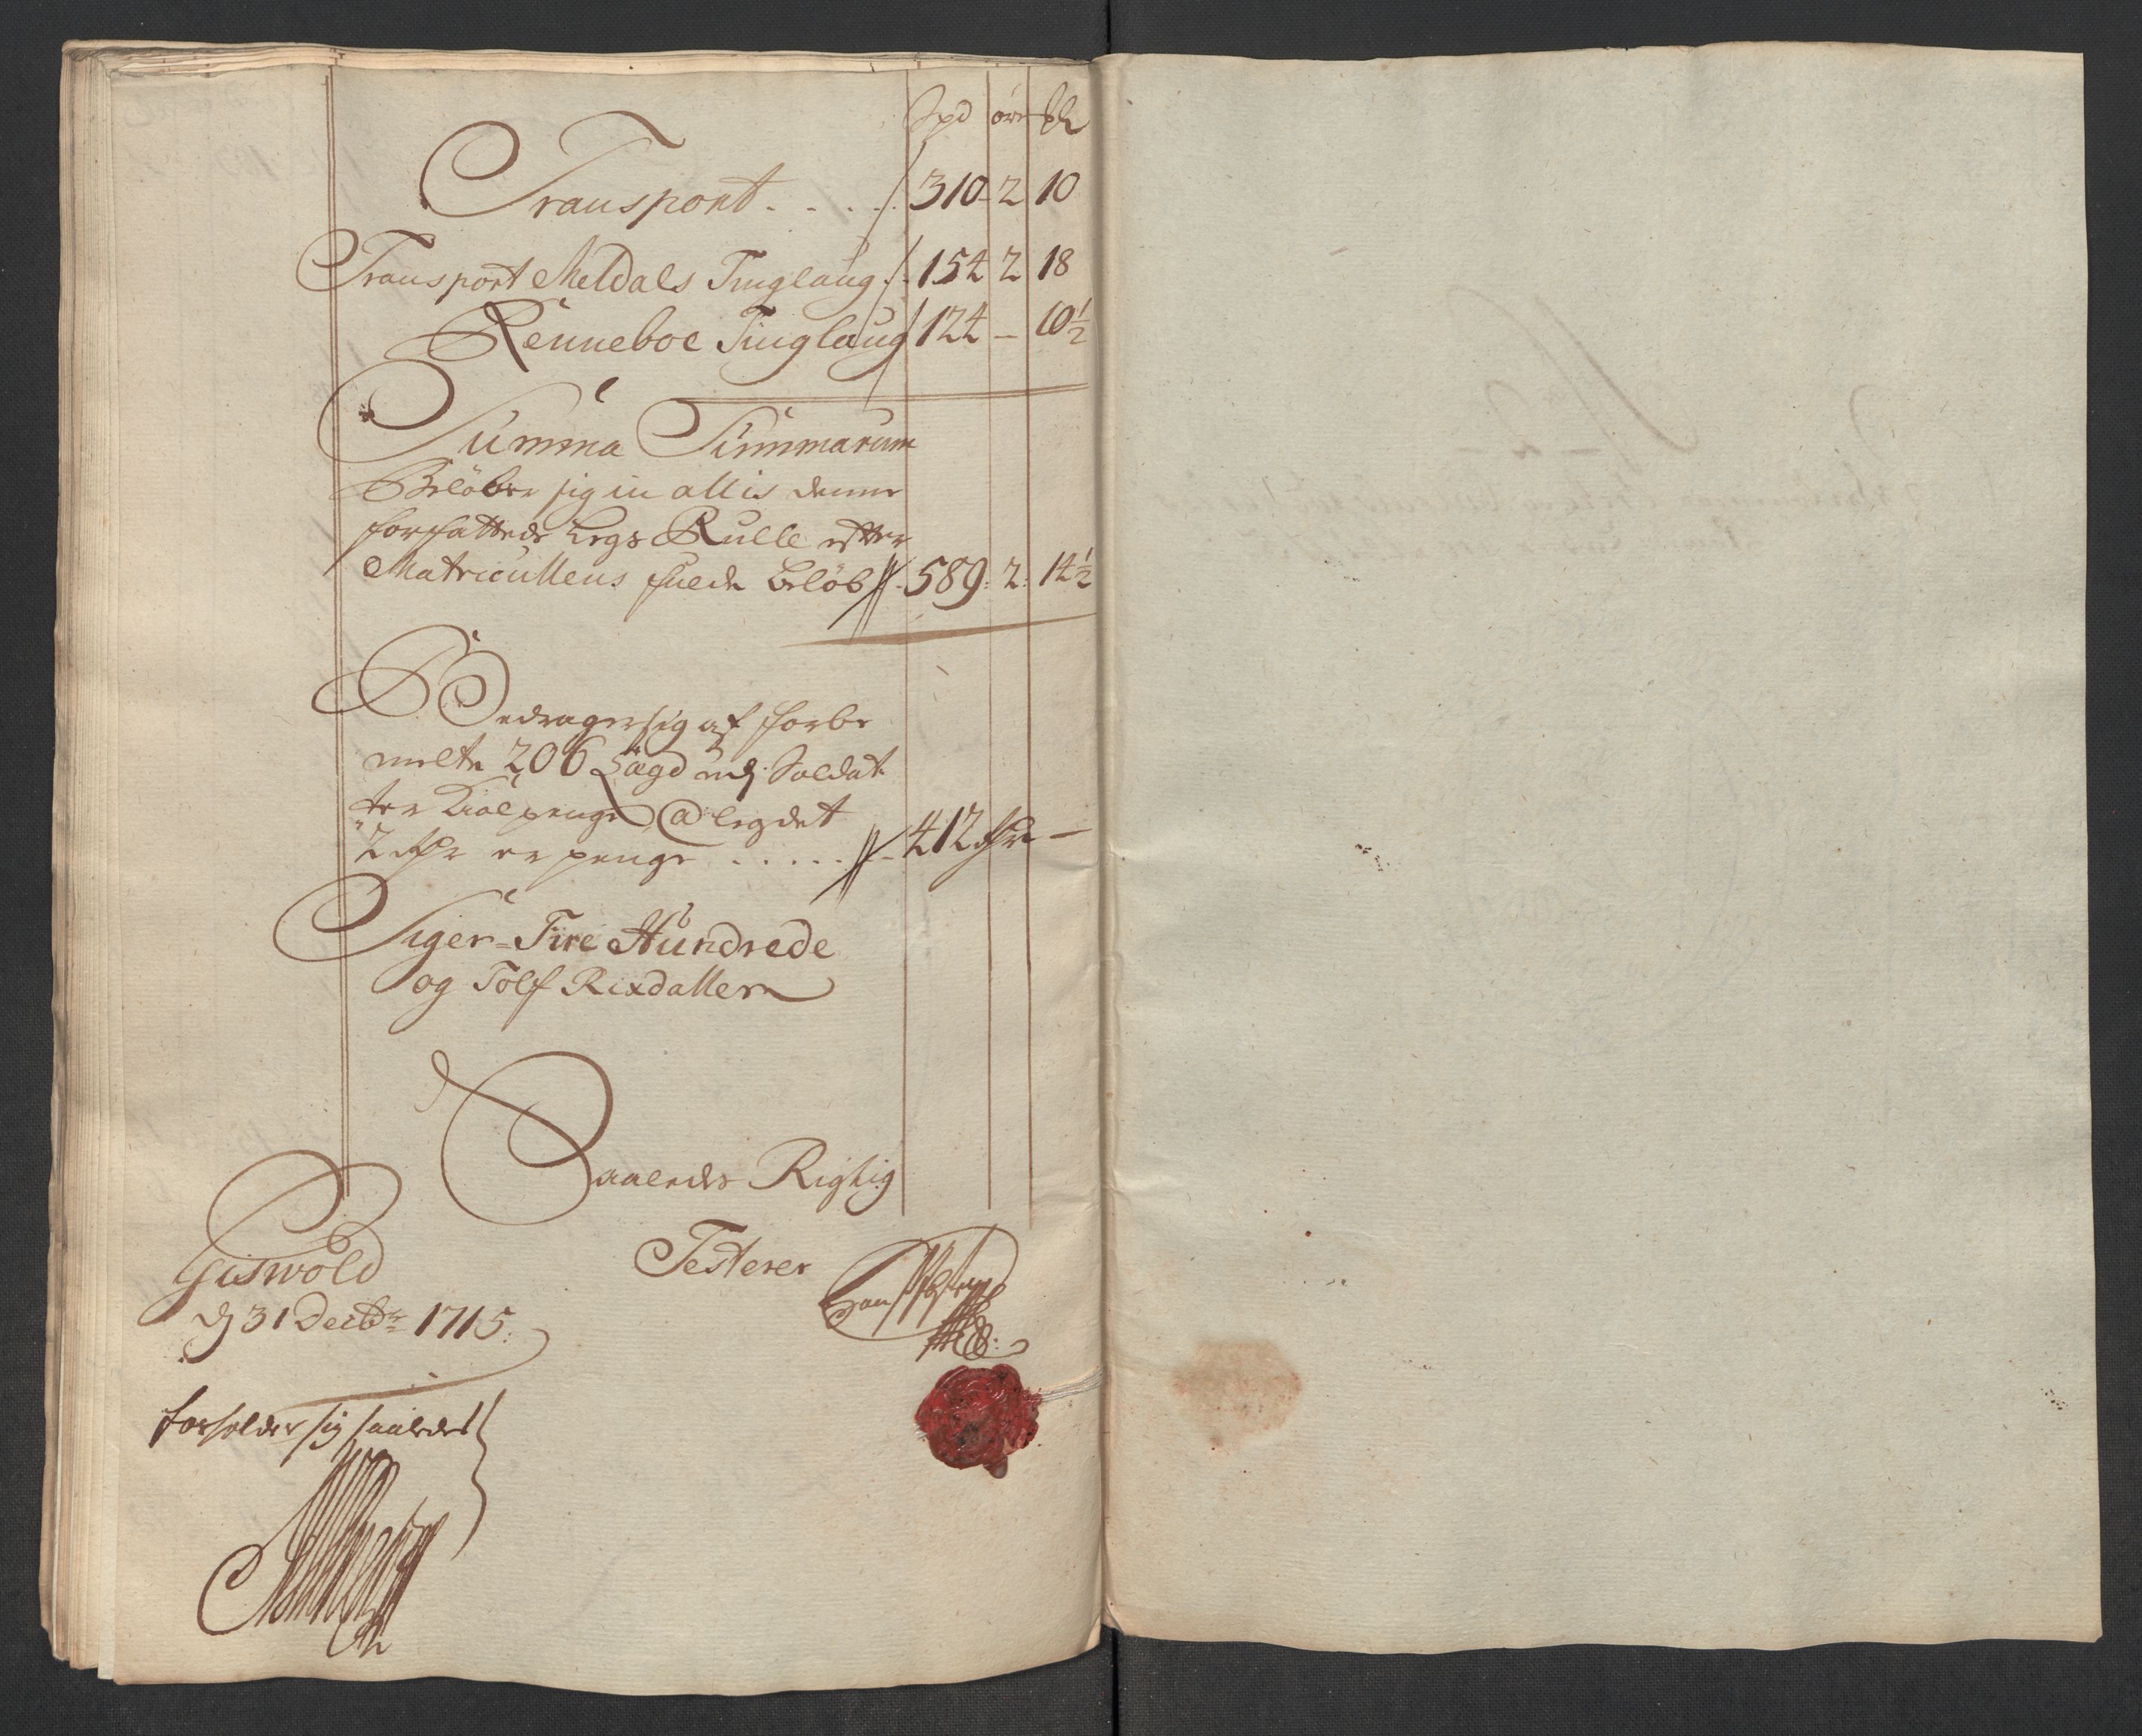 Spd øre
Transport . . . . 310 - 2 10
Transport Meldals Tinglaug . 154 2 18
Renneboe Tinglaug 124 — 10½
Summa Summarum
Beløber sig in allis denne
forfattede Legs Rulle efter
Matricullens fulde beløb . 589: 2: 14½
Bedrager sig af forbe
melte 206 Lægd udj Soldat
ter Kiolpenge @ legdet
2 Rdr er penge . . . . . 412 Rdr —
Siger = Fire Hundrede
og Tolf Rixdaller
Saaledes Rigtig
Giswold
Testerer
dj 31 Decbr: 1715:
forholder sig saaledes